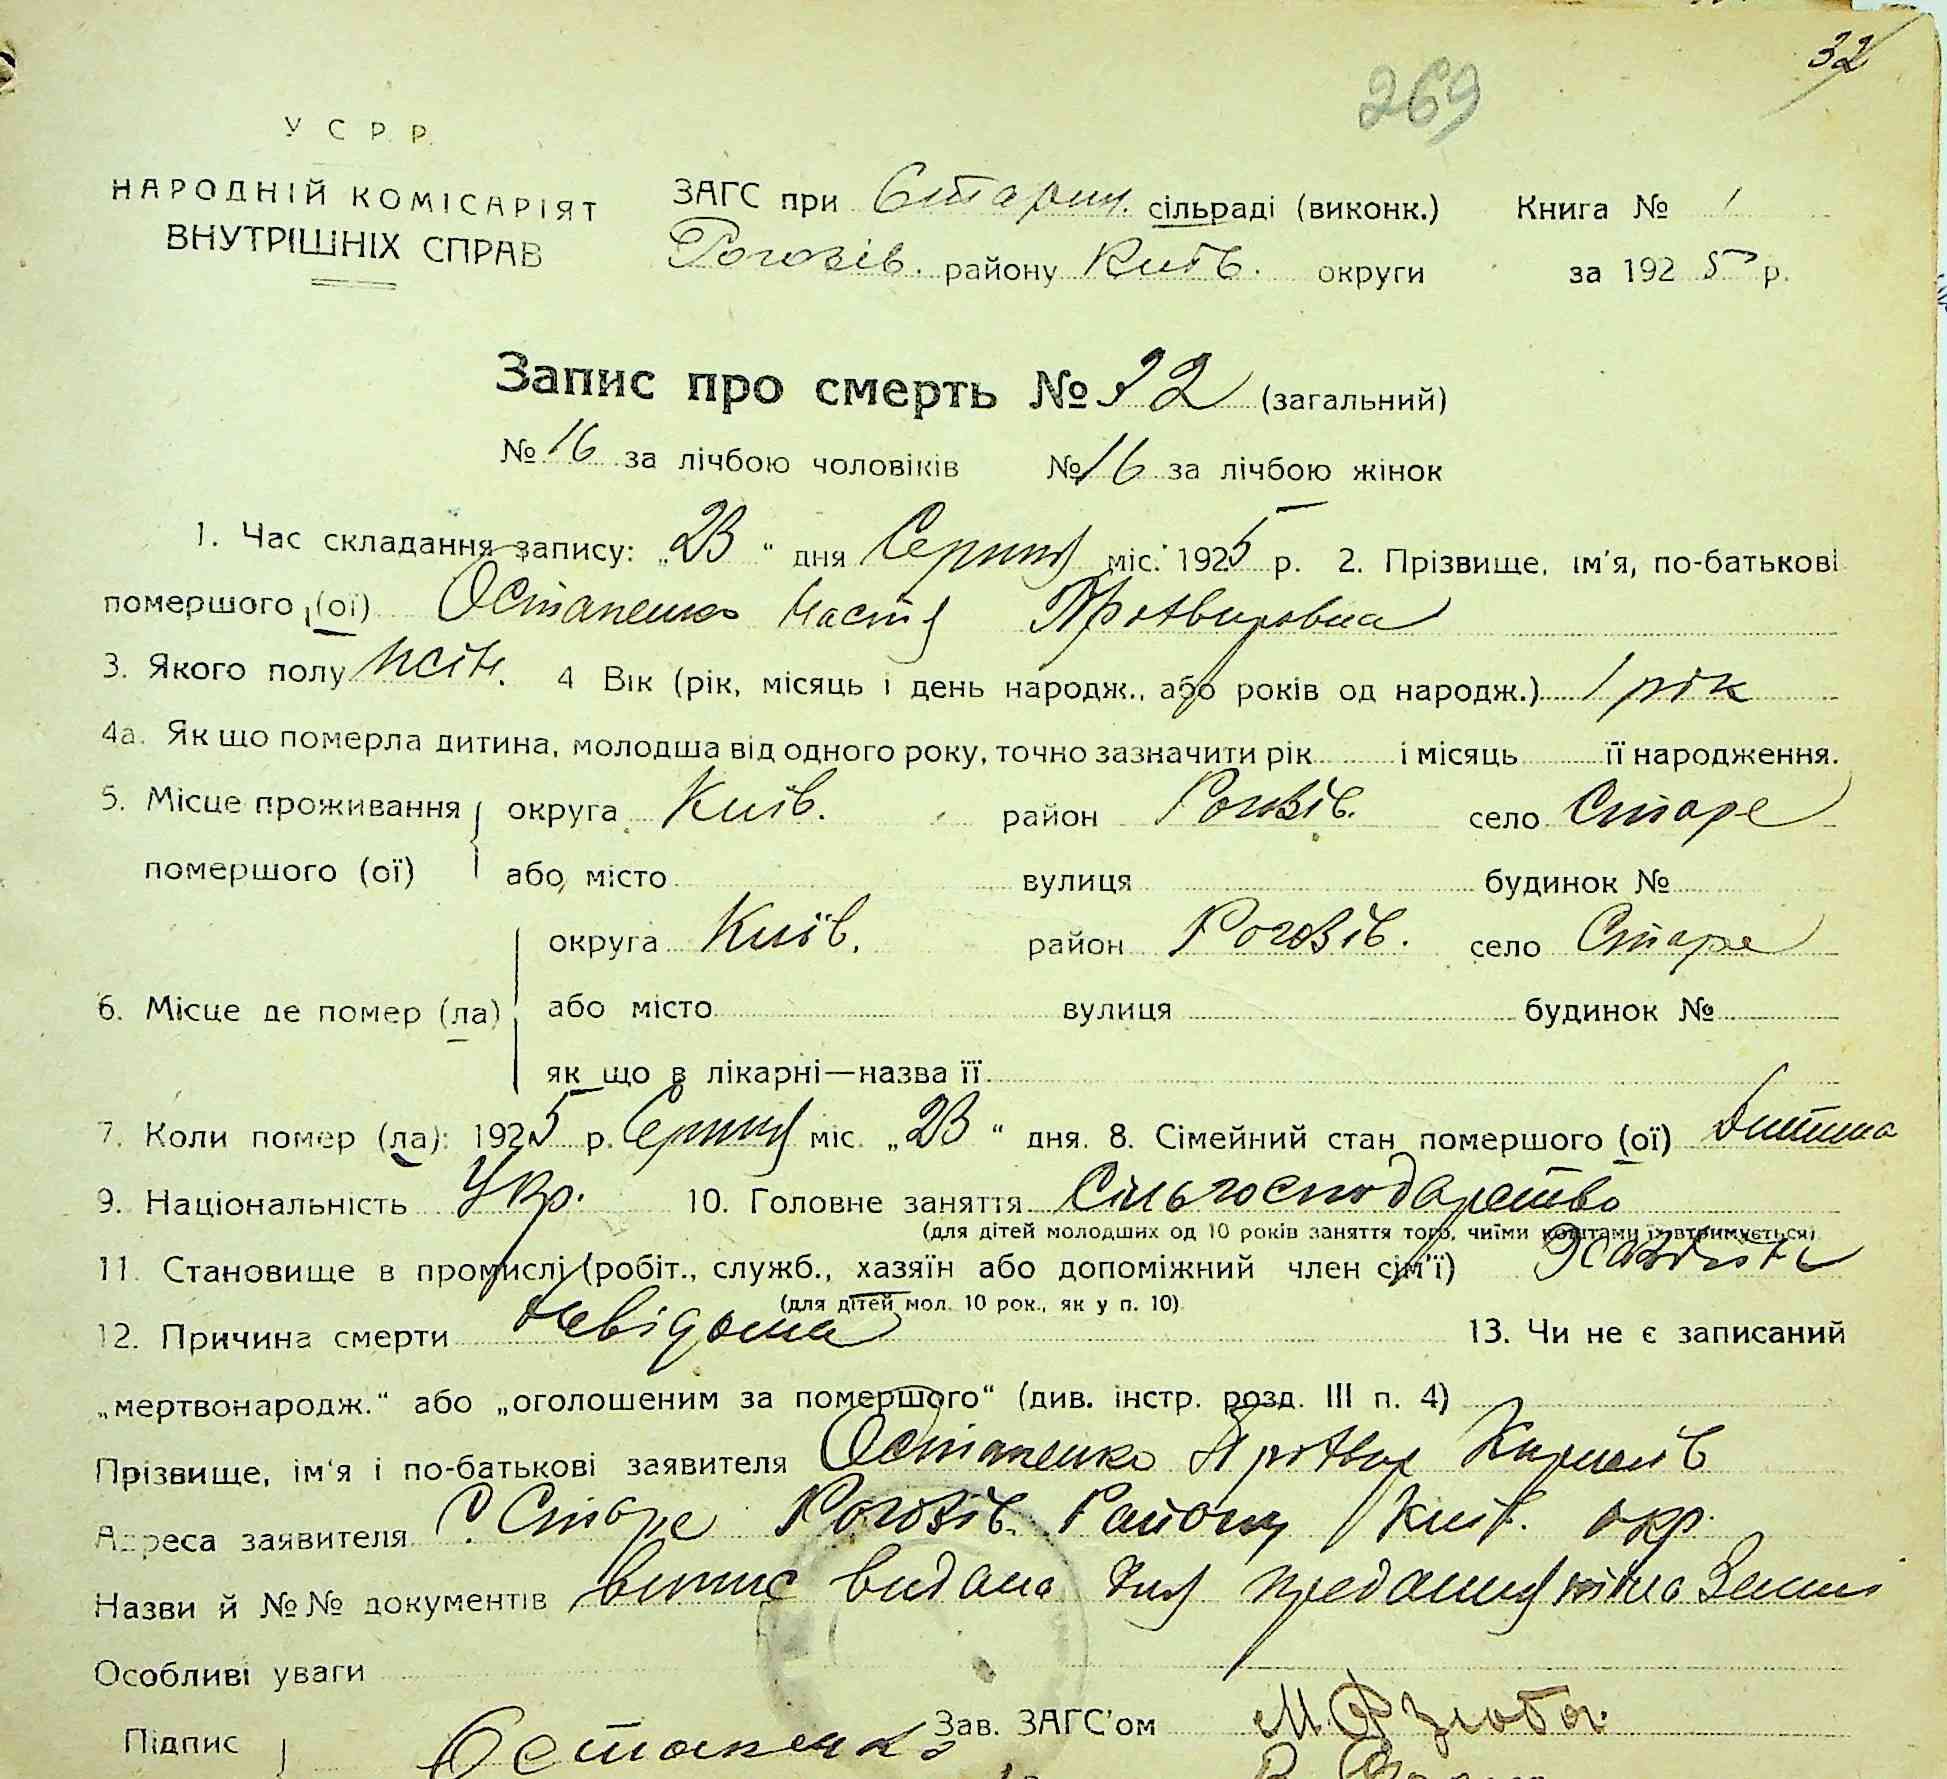 32
269
У С Р. Р.
НАРОДНІЙ КОМІСАРІЯТ
ВНУТРІШНІХ СПРАВ
ЗАГС при Старин. сільраді (виконк.) Книга № 1
Рогозів. району Київ. округи за 1925 р.
Запис про смерть № 32 (загальний)
№ 16 за лічбою чоловіків № 16 за лічбою жінок
1. Час складання запису: „23“ дня Серпня міс. 1925 р. 2. Прізвище, ім'я, по-батькові
помершого (ої) Остапенко Настя
3. Якого полу жін. 4 Вік (рік, місяць і день народж., або років од народж.) 1 рік
4а. Як що померла дитина, молодша від одного року, точно зазначити рік і місяць її народження.
5. Місце проживання округа Київ. район Рогозів. село Старе
помершого (ої) або місто вулиця будинок №
округа Київ. район Рогозів. село Старе
6. Місце де помер (ла) або місто вулиця будинок №
як що в лікарні—назва її
7. Коли помер (ла): 1925 р. Серпня міс. „23“ дня. 8. Сімейний стан помершого (ої) Дитина
9. Національність Укр. 10. Головне заняття Сільгосподарство
(для дітей молодших од 10 років заняття того, чиїми коштами їх втримується)
11. Становище в промислі (робіт., служб., хазяїн або допоміжний член сім'ї)
(для дітей мол. 10 рок., як у п. 10)
12. Причина смерти невідома 13. Чи не є записаний
„мертвонародж.“ або „оголошеним за помершого“ (див. інстр. розд. III п. 4)
Прізвище, ім'я і по-батькові заявителя Остапенко
Адреса заявителя С. Старе Рогозів. Району Київ. окр.
Назви й №№ документів випис видано для предання тіла Землі
Особливі уваги
Підпис Остапенко Зав. ЗАГС'ом